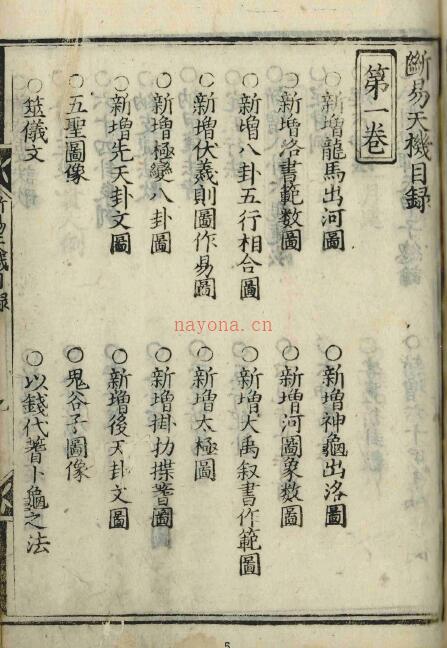 斷易天機目錄
第一卷
○新增龍馬出河圖 ○新增神龜出洛圖
○新增洛書範數圖 ○新增河圖象數圖
○新增八卦五行相合圖 ○新增大禹叙書作範圖
○新增伏羲則圖作易圖 ○新增太極圖
○新增極變八卦圖 ○新增掛扐揲蓍圖
○新增先天卦文圖 ○新增後天卦文圖
○五聖圖像 ○鬼谷子圖像
○筮儀文 ○以錢代蓍卜龜之法
nayona.cn
5